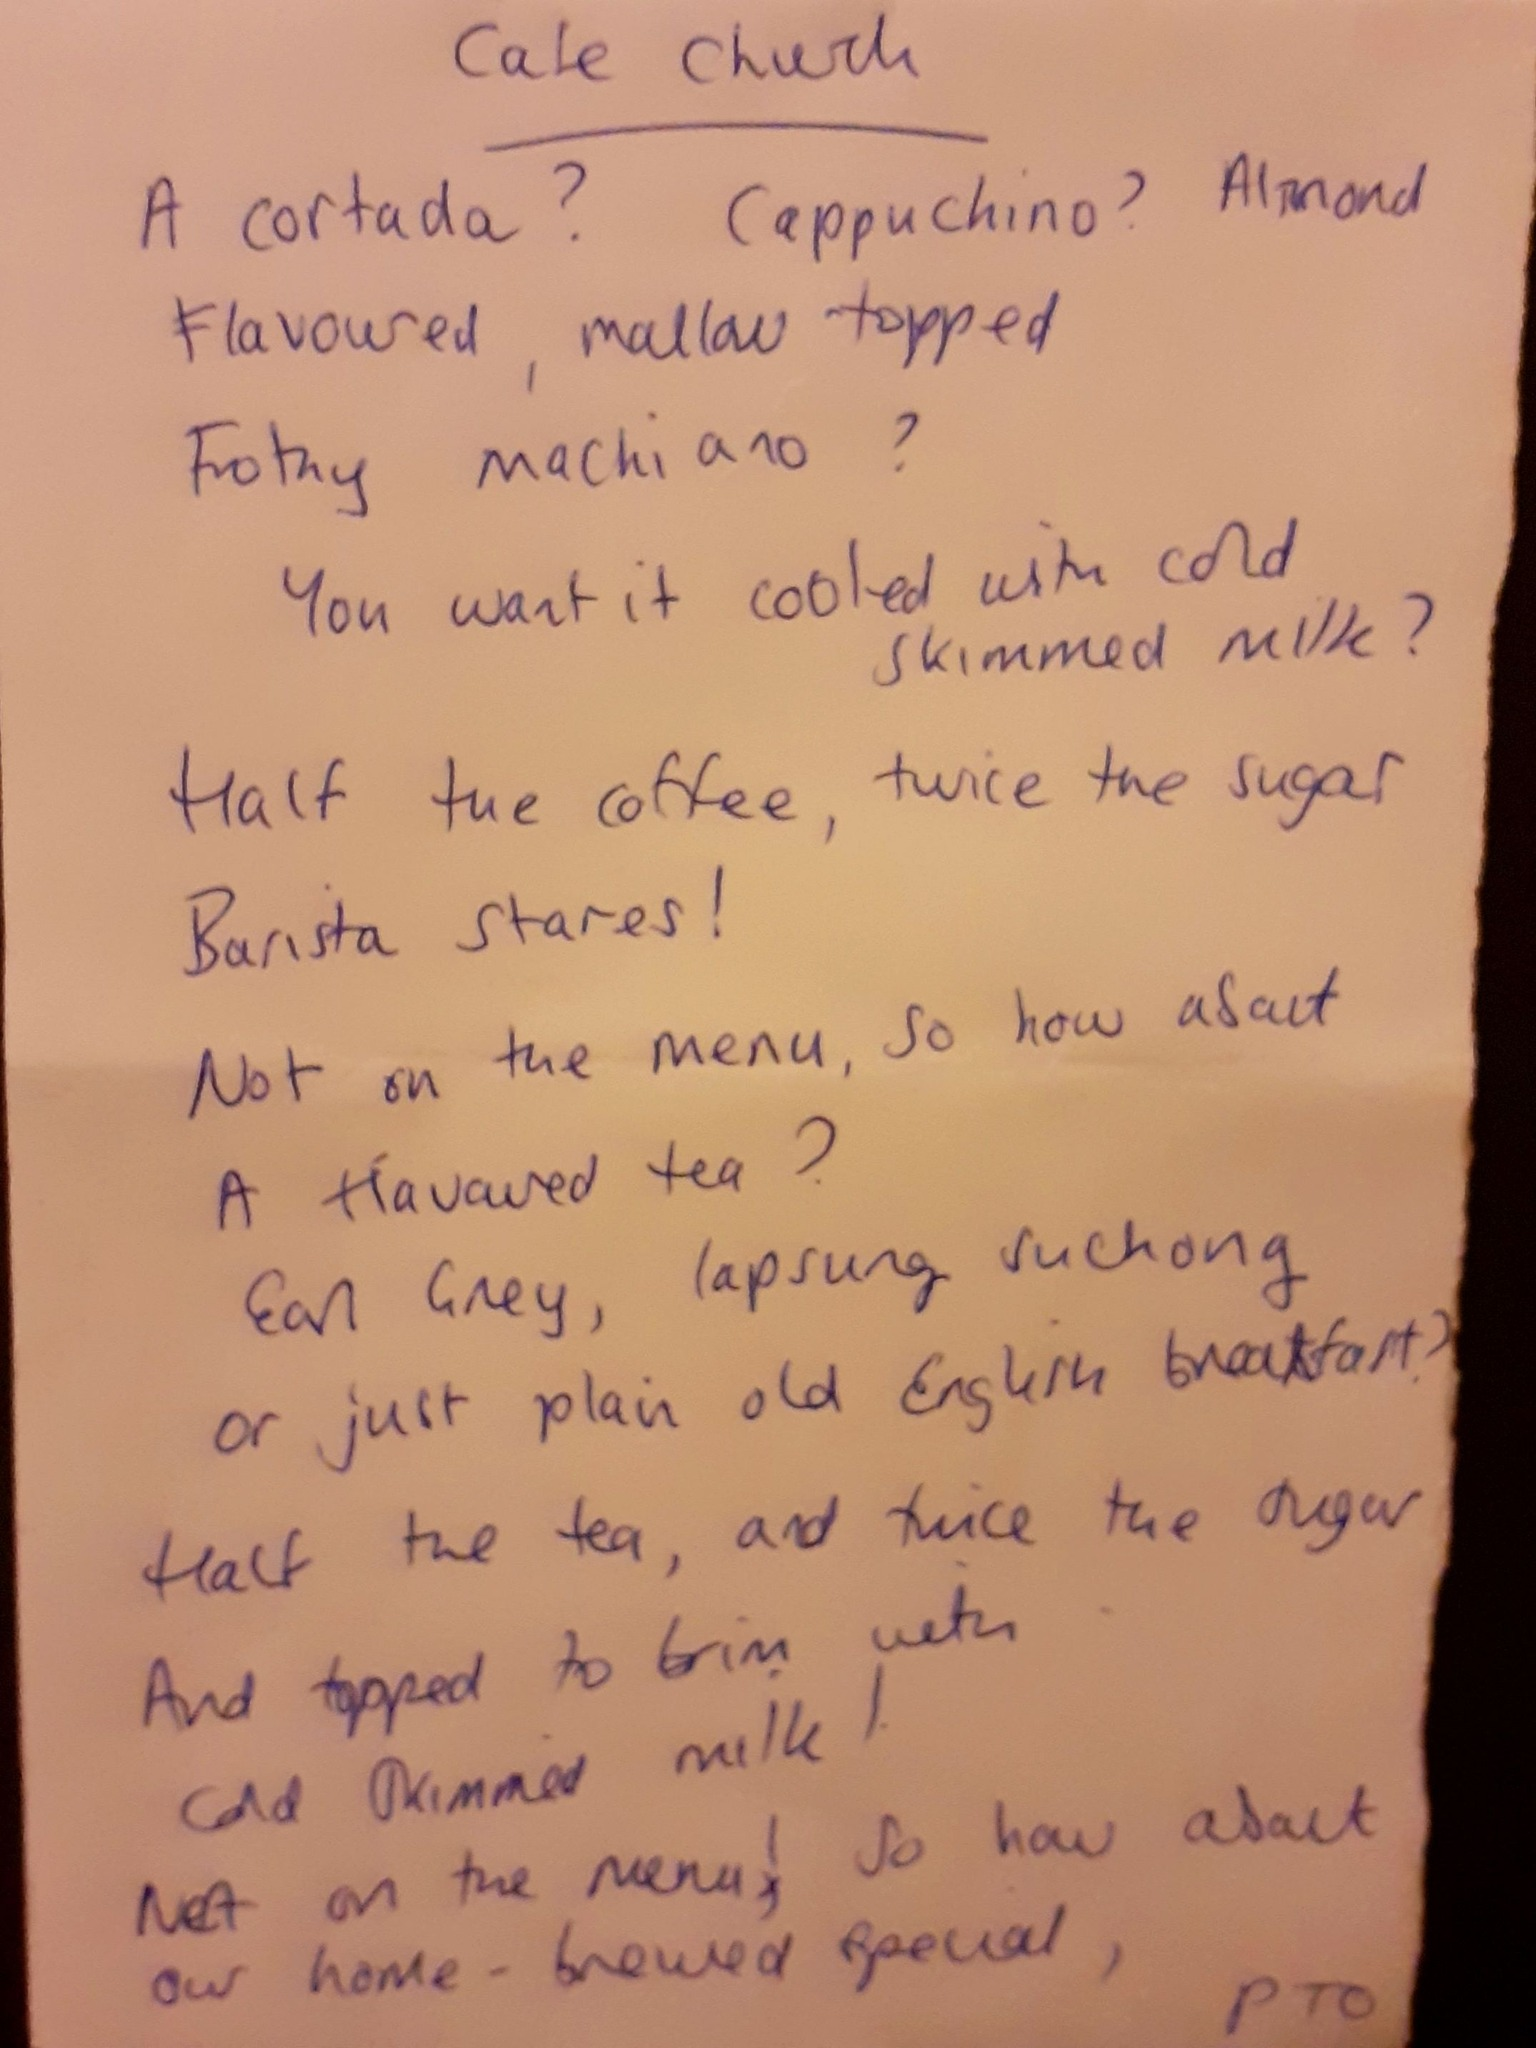 Cafe Church
A cortada? Cappuchino? Almond
Flavoured, mallow topped
Frothy machiano?
You want it cooled with cold
skimmed milk?
Half the coffee, twice the sugar
Barista stares!
Not on the menu, so how about
A flavoured tea?
Earl Grey, lapsung suchong
or just plain old English breakfast?
Half the tea, and twice the sugar
And topped to brim with
cold skimmed milk!
Not on the menu! so how about
our home-brewed special,
PTO